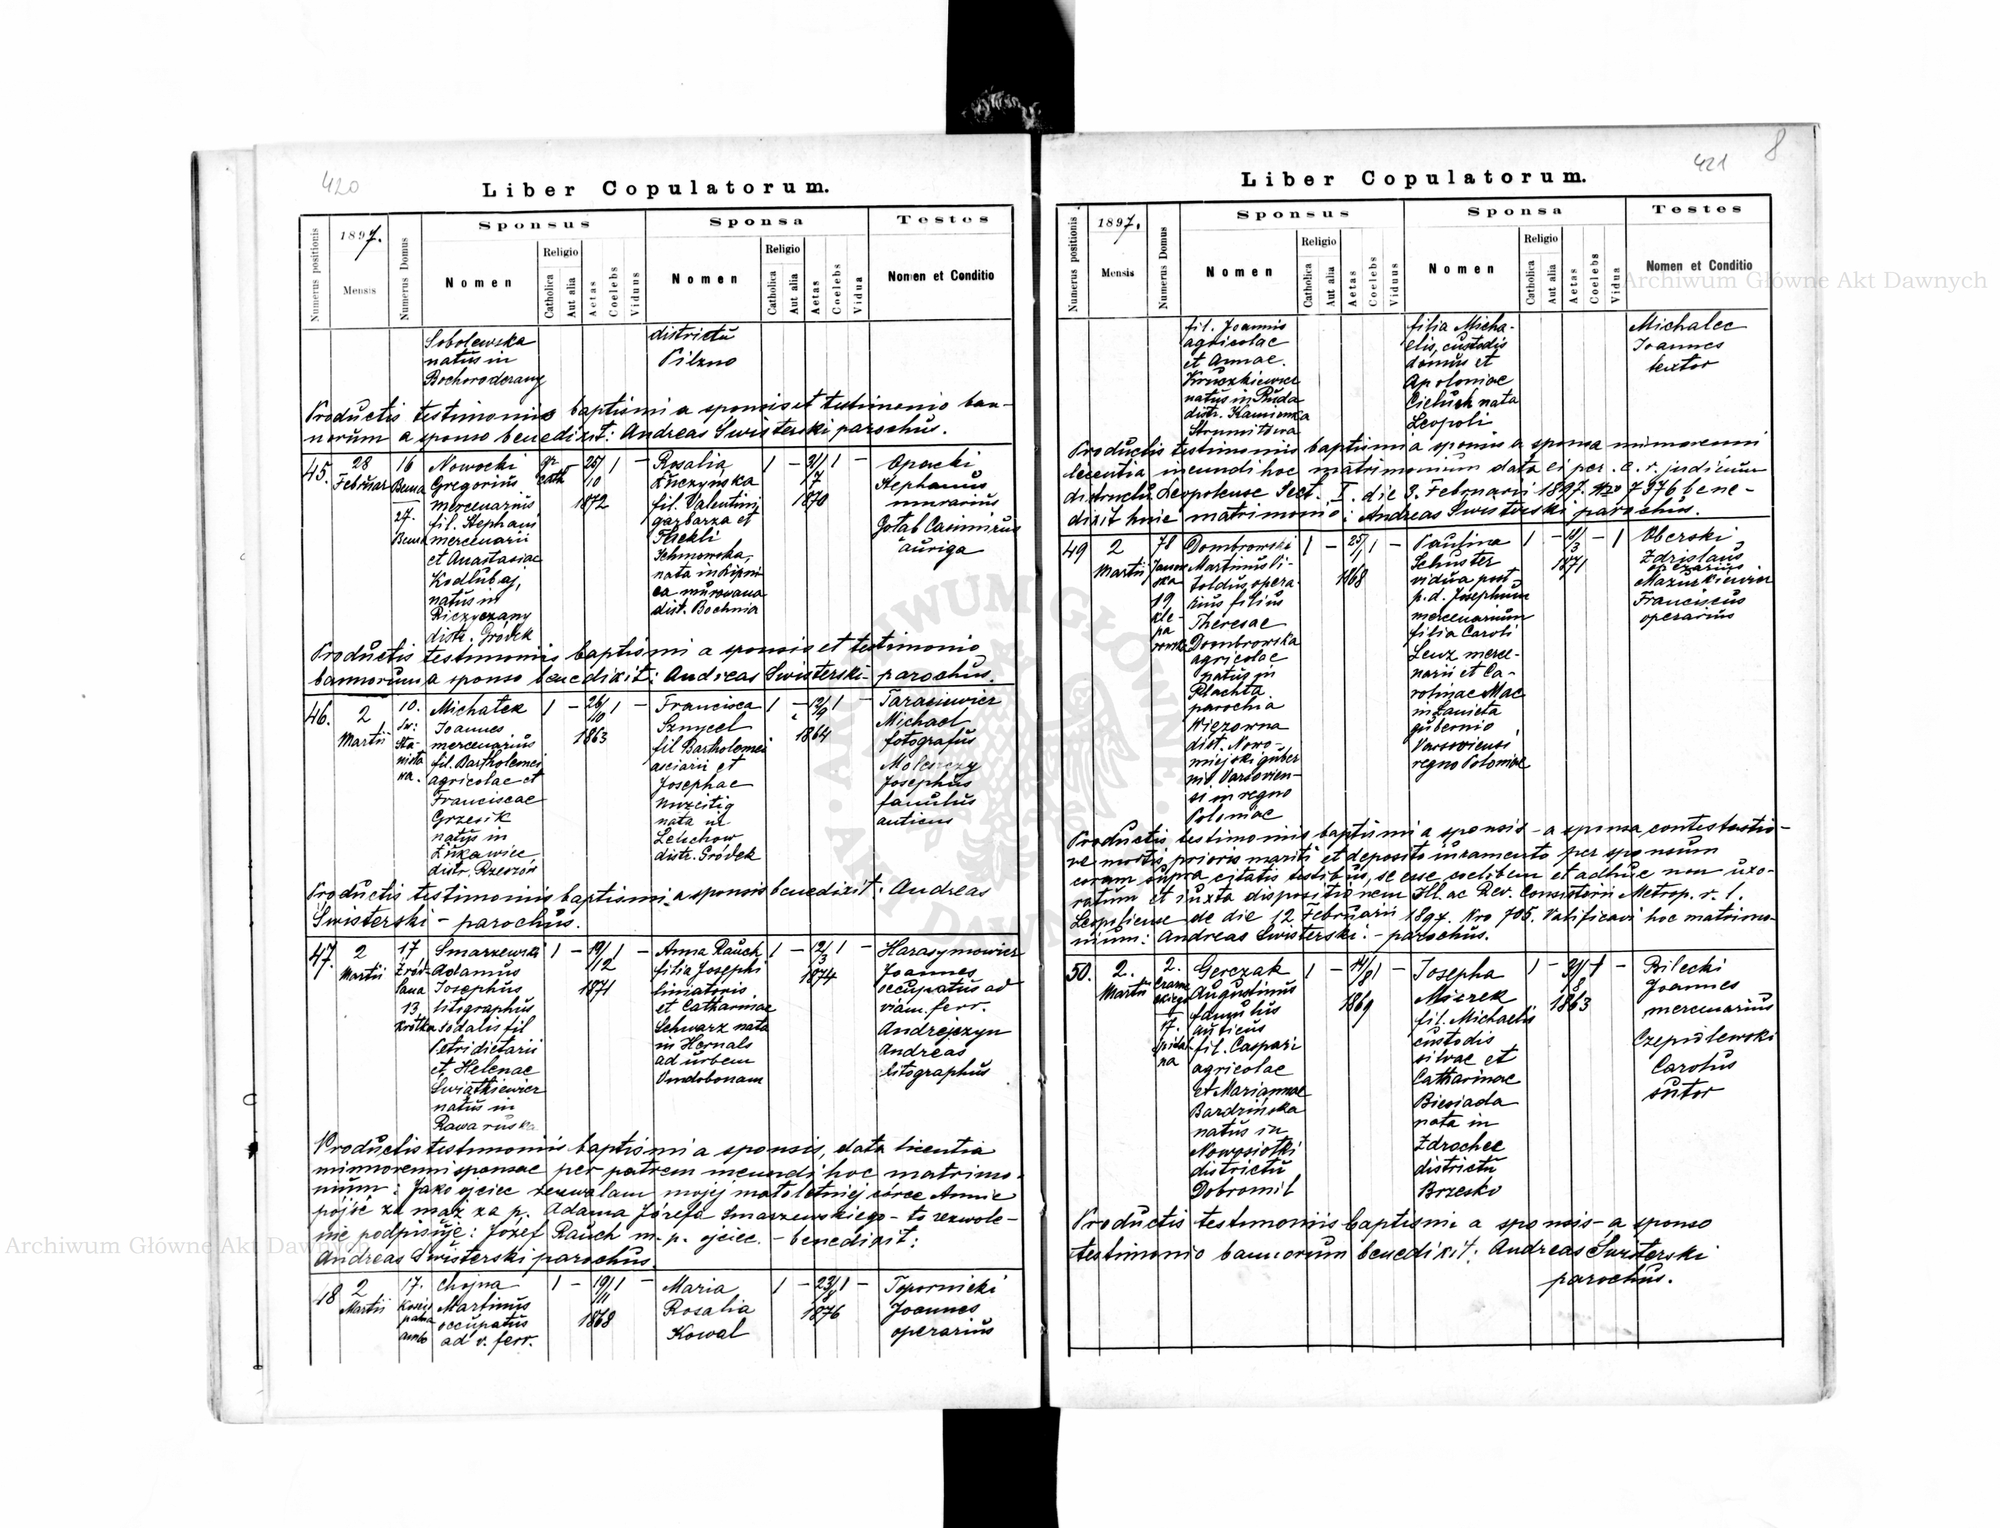 420
Liber Copulatorum.
Numerus positionis
1897.
Mensis
Numerus Domus
Sponsus
Nomen
Religio
Catholica
Aut alia
Aetas
Coelebs
Viduus
Sponsa
Nomen
Religio
Catholica
Aut alia
Aetas
Coelebs
Vidua
Testes
Nomen et Conditio
Sobolewska
natus in
districtu
Pilzno
Productis testimoniis baptismi a sponsis et testimonio ban-
norum a sponso benedixit: Andreas Swisterski parochus.
45.
28
Februar
16
Bema
27.
Bema
Nowocki
Gregorius
mercenarius
fil. Stephani
mercenarii
et Anastasiae
Kodlubaj,
natus in
distr. Gródek
gr
cath
25/10
1
1872
Rosalia
Łuczynska
fil. Valentini
garbarza et
Theckli
nata in Lipni
ca murowana
dist. Bochnia
1
31/7
1
1870
Opacki
Stephanus
murarius
Gołab Casimirus
auriga
Productis testimoniis baptismi a sponsis et testimonio
bannorum a sponso benedixit: Andreas Swisterski - parochus.
46.
2
Martii
10.
Sw:
Sta-
nisła
wa.
Michałek
Joannes
mercenarius
fil. Bartholomei
agricolae et
Franciscae
Grzesik
natus in
Łukawiec
distr. Rzeszów
1
26/10
1
1863
Francisca
Sznycel
fil Bartholomei
asciarii et
Josephae
nata in
distr. Gródek
1
12/9
1
1864
Tarasiewicz
Michael
fotografus
Josephus
famulus
auticus
Productis testimoniis baptismi a sponsis benedixit: Andreas
Swisterski - parochus.
47.
2
Martii
17
Źród-
lana
13
Krótka
Smarzewski
Adamus
Josephus
litigraphus
sodalis fil
Petri dietarii
et Helenae
Swiątkiewicz
natus in
Rawa ruska
1
19/12
1
1871
Anna Rauch
filia Josephi
limatoris
et Catharinae
Schwarz nata
in Hernals
ad urbem
Vindobonam
1
12/3
1
1874
Harasymowicz
Joannes
occupatus ad
viam. ferr.
Andrejczyn
Andreas
litographus
Productis testimoniis baptismi a sponsis, data licentia
minorenni sponsae per patrem ineundi hoc matrimo-
nium: Jako ojciec zezwalam mojej małoletniej córce Annie
pójść za mąż za p. Adama Józefa Smarzewskiego - to zezwole-
nie podpisuję: Józef Rauch m. p. ojciec. - benedixit:
Andreas Swisterski parochus.
48
2
Martii
17.
Chojna
Martinus
occupatus
ad v. ferr.
1
19/11
1
1868
Maria
Rosalia
Kowal
1
23/8
1
1876
Topornicki
Joannes
operarius
421
8
Liber Copulatorum.
Numerus positionis
1897.
Mensis
Numerus Domus
Sponsus
Nomen
Religio
Catholica
Aut alia
Aetas
Coelebs
Viduus
Sponsa
Nomen
Religio
Catholica
Aut alia
Aetas
Coelebs
Vidua
Testes
Nomen et Conditio
fil. Joannis
agricolae
et Annae
Kruczkiewicz
natus in Ruda
distr. Kamionka
Strumiłowa
filia Micha-
elis, custodis
domus et
Apoloniae
Cieluch nata
Leopoli
Michalec
Joannes
textor
Productis testimoniis baptismi a sponsis a sponsa minorenni
licentia ineundi hoc matrimonium data ei per. c. r. judicium
districtu. Leopoliense Sect. I. die 3. Februarii 1897. Nro 7976 bene-
dixit huic matrimonio: Andreas Swisterski parochus.
49
2
Martii
78
Janow
ska
19
Kle-
pa
rowska
Dombrowski
Martinus Vi-
toldus opera-
rius filius
Theresae
Dombrowska
agricolae
natus in
Płachta
parochia
dist. Nowo-
miejski guber
nii Varsovien-
si in regno
Poloniae
1
25/1
1
1868
Paulina
Schuster
vidua post
p. d. Josephum
mercenarium
filia Caroli
Lenz merce-
narii et Ca-
rolinae Mac
gubernio
Varsoviensi
regno Poloniae
1
10/3
1
1871
Oberski
Zdzislaus
operarius
Mazurkiewicz
Franciscus
operarius
Productis testimoniis baptismi a sponsis - a sponsa contestatio-
ne mortis prioris mariti et deposito iuramento per sponsum
coram supra citatis testibus, se esse coelibem et adhuc non uxo-
ratum et iuxta dispositionem Ill. ac Rev. Consistorii Metrop. r. l.
Leopoliense de die 12 Februarii 1897. Nro 705. Ratificavi hoc matrimo-
nium: Andreas Swisterski - parochus.
50.
2.
Martii
2.
Czarne
ckiego
17.
Gerczak
Augustinus
famulus
auticus
fil. Caspari
agricolae
et Mariannae
Bardzińska
natus in
Nowosiołki
districtu
Dobromil
1
14/8
1
1869
Josepha
Mierek
fil. Michaelis
custodis
silvae et
Catharinae
Biesiada
nata in
Zdrochec
districtu
Brzesko
1
31/8
1
1863
Bilecki
Joannes
mercenarius
Czepidlewski
Carolus
sutor
Productis testimoniis baptismi a sponsis - a sponso
testimonio bannorum benedixit: Andreas Swisterski
parochus.
Archiwum Główne Akt Dawnych
Archiwum Główne Akt Dawnych
ARCHIWUM GŁÓWNE AKT DAWNYCH